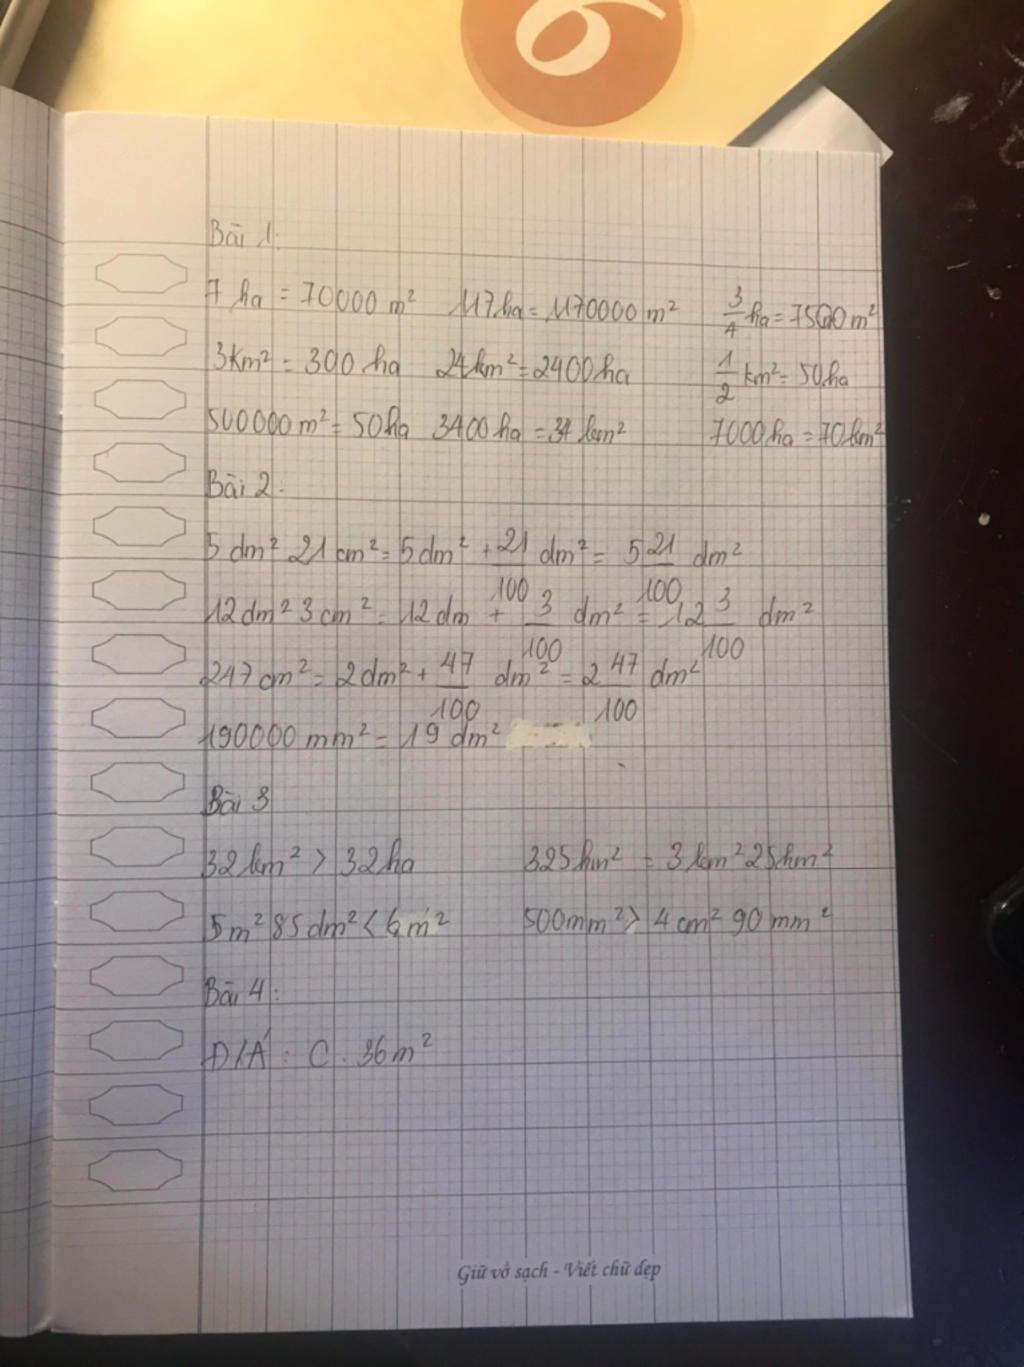 6
Bài 1:
7 ha = 70000 m² 117 ha = 1170000 m² 3/4 ha = 7500 m²
3 km² = 300 ha 24 km² = 2400 ha 1/2 km² = 50 ha
500000 m² = 50 ha 3400 ha = 34 km² 7000 ha = 70 km²
Bài 2:
5 dm² 21 cm² = 5 dm² + 21/100 dm² = 5 21/100 dm²
12 dm² 3 cm² = 12 dm + 3/100 dm² = 12 3/100 dm²
247 cm² = 2 dm² + 47/100 dm² = 2 47/100 dm²
190000 mm² = 19 dm²
Bài 3
32 km² > 32 ha 325 hm² = 3 km² 25 hm²
5 m² 85 dm² < 6 m² 500 mm² > 4 cm² 90 mm²
Bài 4:
Đ/Á : C. 36 m²
Giữ vở sạch - Viết chữ đẹp